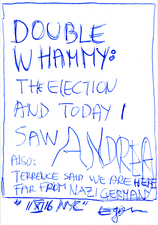 DOUBLE
WHAMMY:
THE ELECTION
AND TODAY I
SAW ANDREA
ALSO:
TERRENCE SAID WE ARE HERE
FAR FROM NAZI GERMANY
" 11 XI 16 NYC"